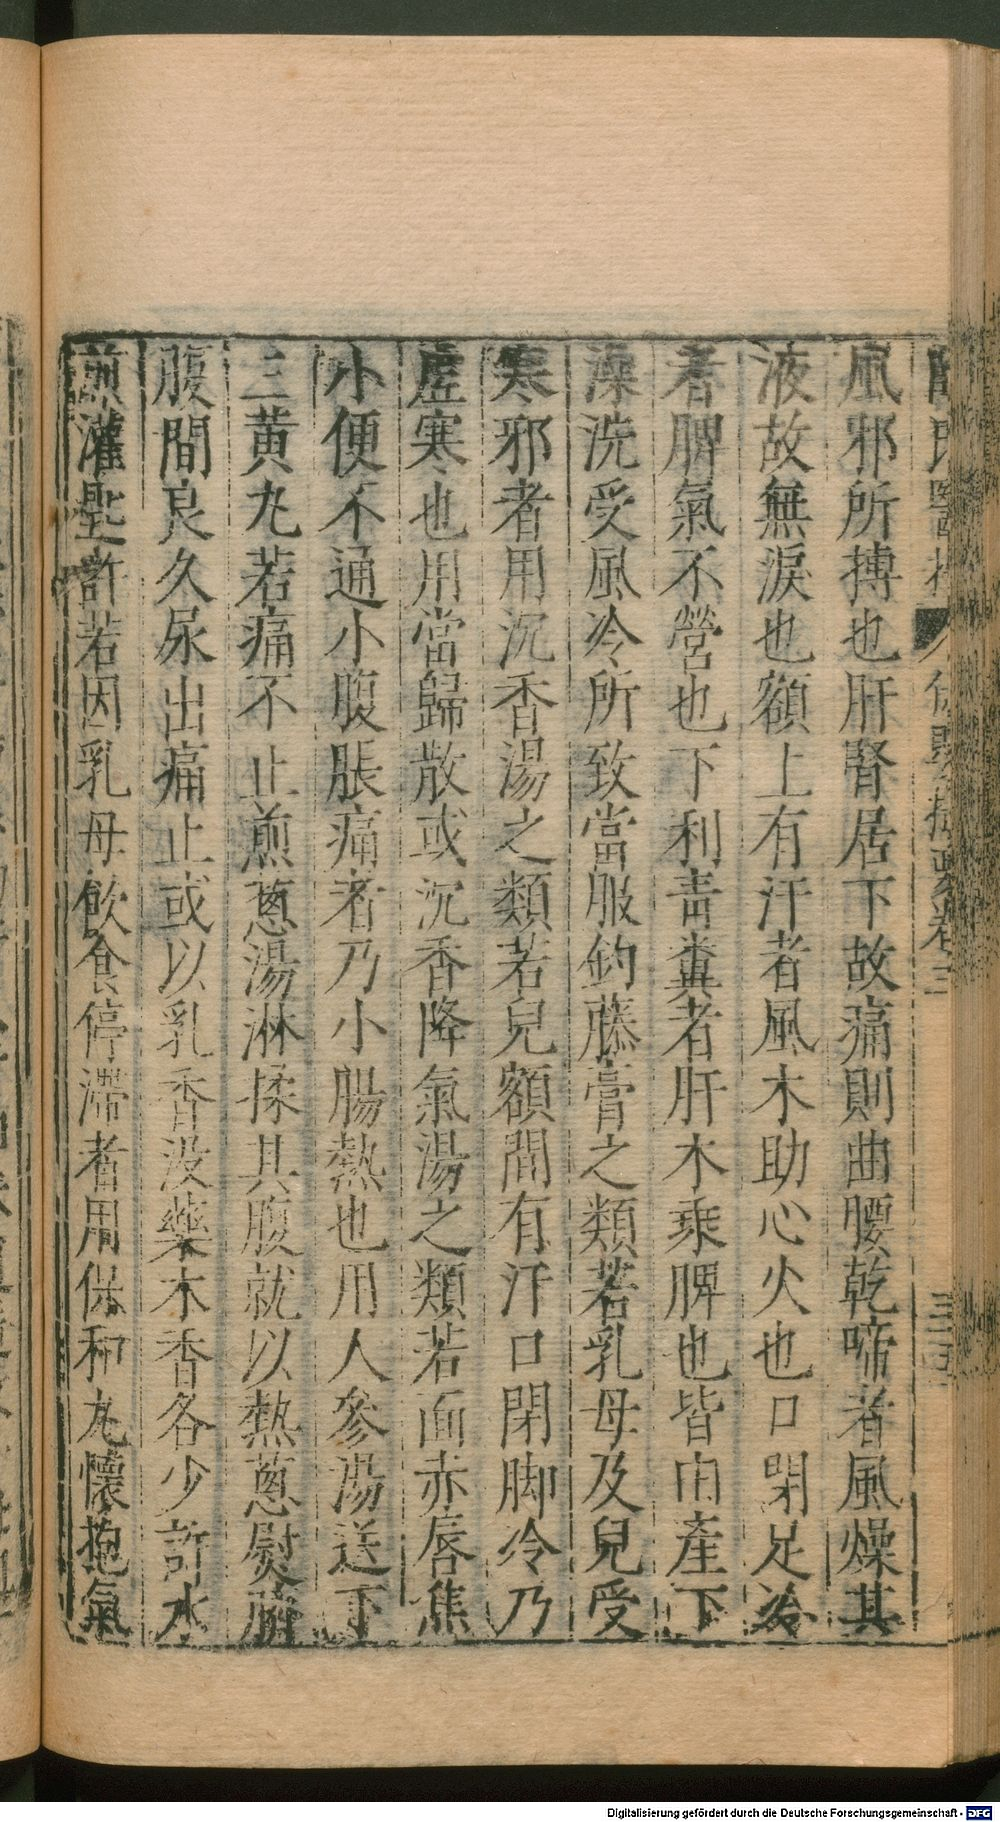 風邪所搏也肝腎居下故痛則曲腰乾啼者風燥其
液故無淚也額上有汗者風木助心火也口閉足冷
者脾氣不營也下利青糞者肝木乘脾也皆由產下
澡洗受風冷所致當服釣藤膏之類若乳母及兒受
寒邪者用沉香湯之類若兒額間有汗口閉脚冷乃
虛寒也用當歸散或沉香降氣湯之類若面赤唇焦
小便不通小腹脹痛者乃小腸熱也用人參湯送下
三黄丸若痛不止煎蔥湯淋揉其腹就以熱蔥熨臍
腹間良久尿出痛止或以乳香没藥木香各少許水
煎灌匙許若因乳母飲食停滯者用保和丸懷抱氣
Digitalisierung gefördert durch die Deutsche Forschungsgemeinschaft - DFG